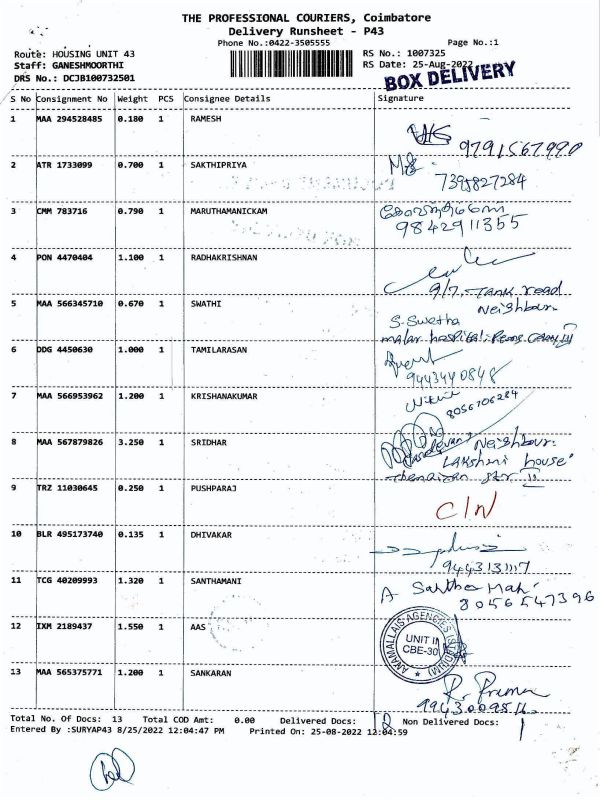 THE PROFESSIONAL COURIERS, Coimbatore
Delivery Runsheet - P43
Phone No.:0422-3505555 Page No.:1
Route: HOUSING UNIT 43 RS No.: 1007325
Staff: GANESHMOORTHI RS Date: 25-Aug-2022
DRS No.: DCJB100732501 BOX DELIVERY
S No Consignment No Weight PCS Consignee Details Signature
1 MAA 294528485 0.180 1 RAMESH
9791567990
2 ATR 1733099 0.700 1 SAKTHIPRIYA
7395827284
3 CMM 783716 0.790 1 MARUTHAMANICKAM
9842911355
4 PON 4470404 1.100 1 RADHAKRISHNAN
9/7, Tank road
Neighbour
5 MAA 566345710 0.670 1 SWATHI
S. Swetha
malar hospital
6 DDG 4450630 1.000 1 TAMILARASAN
9443440848
7 MAA 566953962 1.200 1 KRISHANAKUMAR
8056706284
8 MAA 567879826 3.250 1 SRIDHAR
Neighbour
Lakshmi house
9 TRZ 11030645 0.250 1 PUSHPARAJ
C/N
10 BLR 495173740 0.135 1 DHIVAKAR
9443131117
11 TCG 40209993 1.320 1 SANTHAMANI
8056547396
12 IXM 2189437 1.550 1 AAS
UNIT II
CBE-30
13 MAA 565375771 1.200 1 SANKARAN
Total No. Of Docs: 13 Total COD Amt: 0.00 Delivered Docs: 12 Non Delivered Docs: 1
Entered By :SURYAP43 8/25/2022 12:04:47 PM Printed On: 25-08-2022 12:04:59